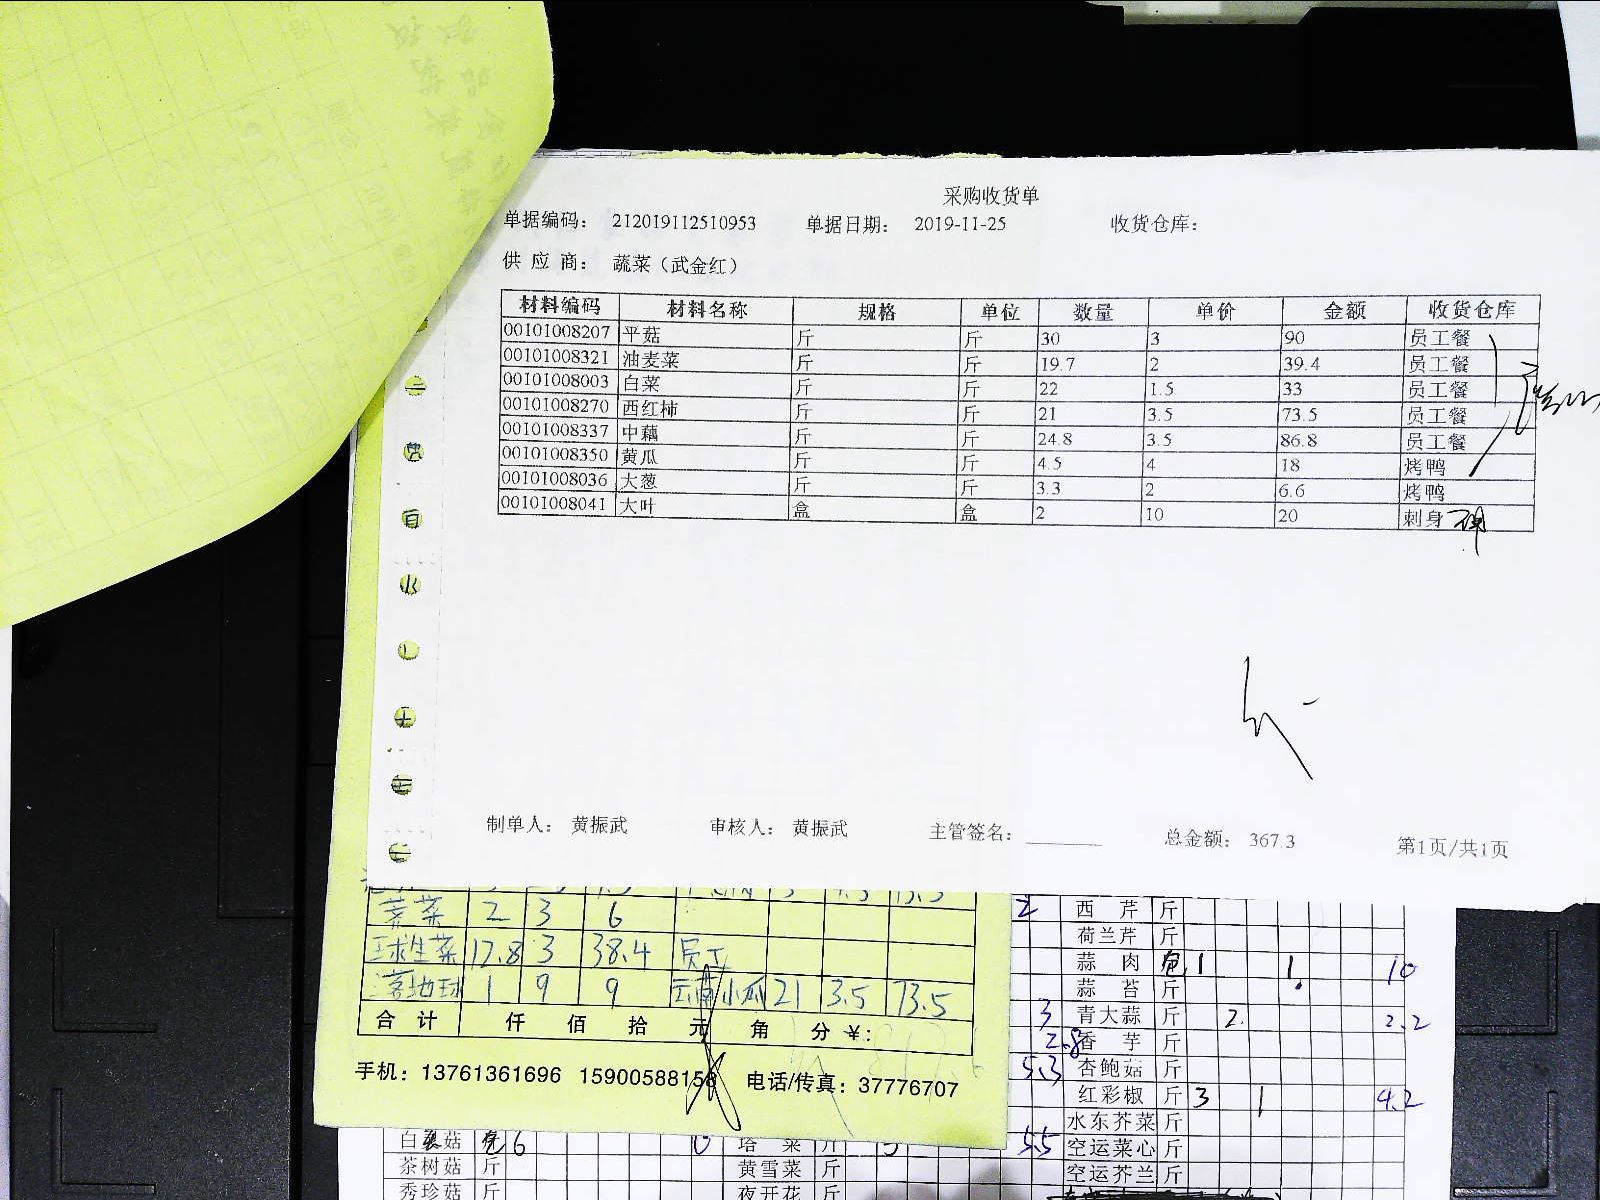 采购收货单
单据编码： 212019112510953 单据日期： 2019-11-25 收货仓库：
供 应 商： 蔬菜（武金红）
材料编码 材料名称 规格 单位 数量 单价 金额 收货仓库
00101008207 平菇 斤 斤 30 3 90 员工餐
00101008321 油麦菜 斤 斤 19.7 2 39.4 员工餐
00101008003 白菜 斤 斤 22 1.5 33 员工餐
00101008270 西红柿 斤 斤 21 3.5 73.5 员工餐
00101008337 中藕 斤 斤 24.8 3.5 86.8 员工餐
00101008350 黄瓜 斤 斤 4.5 4 18 烤鸭
00101008036 大葱 斤 斤 3.3 2 6.6 烤鸭
00101008041 大叶 盒 盒 2 10 20 刺身
制单人： 黄振武 审核人： 黄振武 主管签名： 总金额： 367.3 第1页/共1页
2 3 6
球生菜 12.8 3 38.4 员工
落地球 1 9 9 云南小瓜 21 3.5 73.5
合 计 仟 佰 拾 元 角 分 ￥：
手机：13761361696 15900588158 电话/传真：37776707
2 西 芹 斤
荷兰芹 斤
蒜 肉 1 1. 10
蒜 苔 斤
3 青大蒜 斤 2. 2.2
2.8 香 芋 斤
5.3 杏鲍菇 斤
红彩椒 斤 3 1 4.2
水东芥菜 斤
5.5 空运菜心 斤
空运芥兰 斤
6 塔 菜 斤
茶树菇 斤 黄雪菜 斤
秀珍菇 斤 夜开花 斤